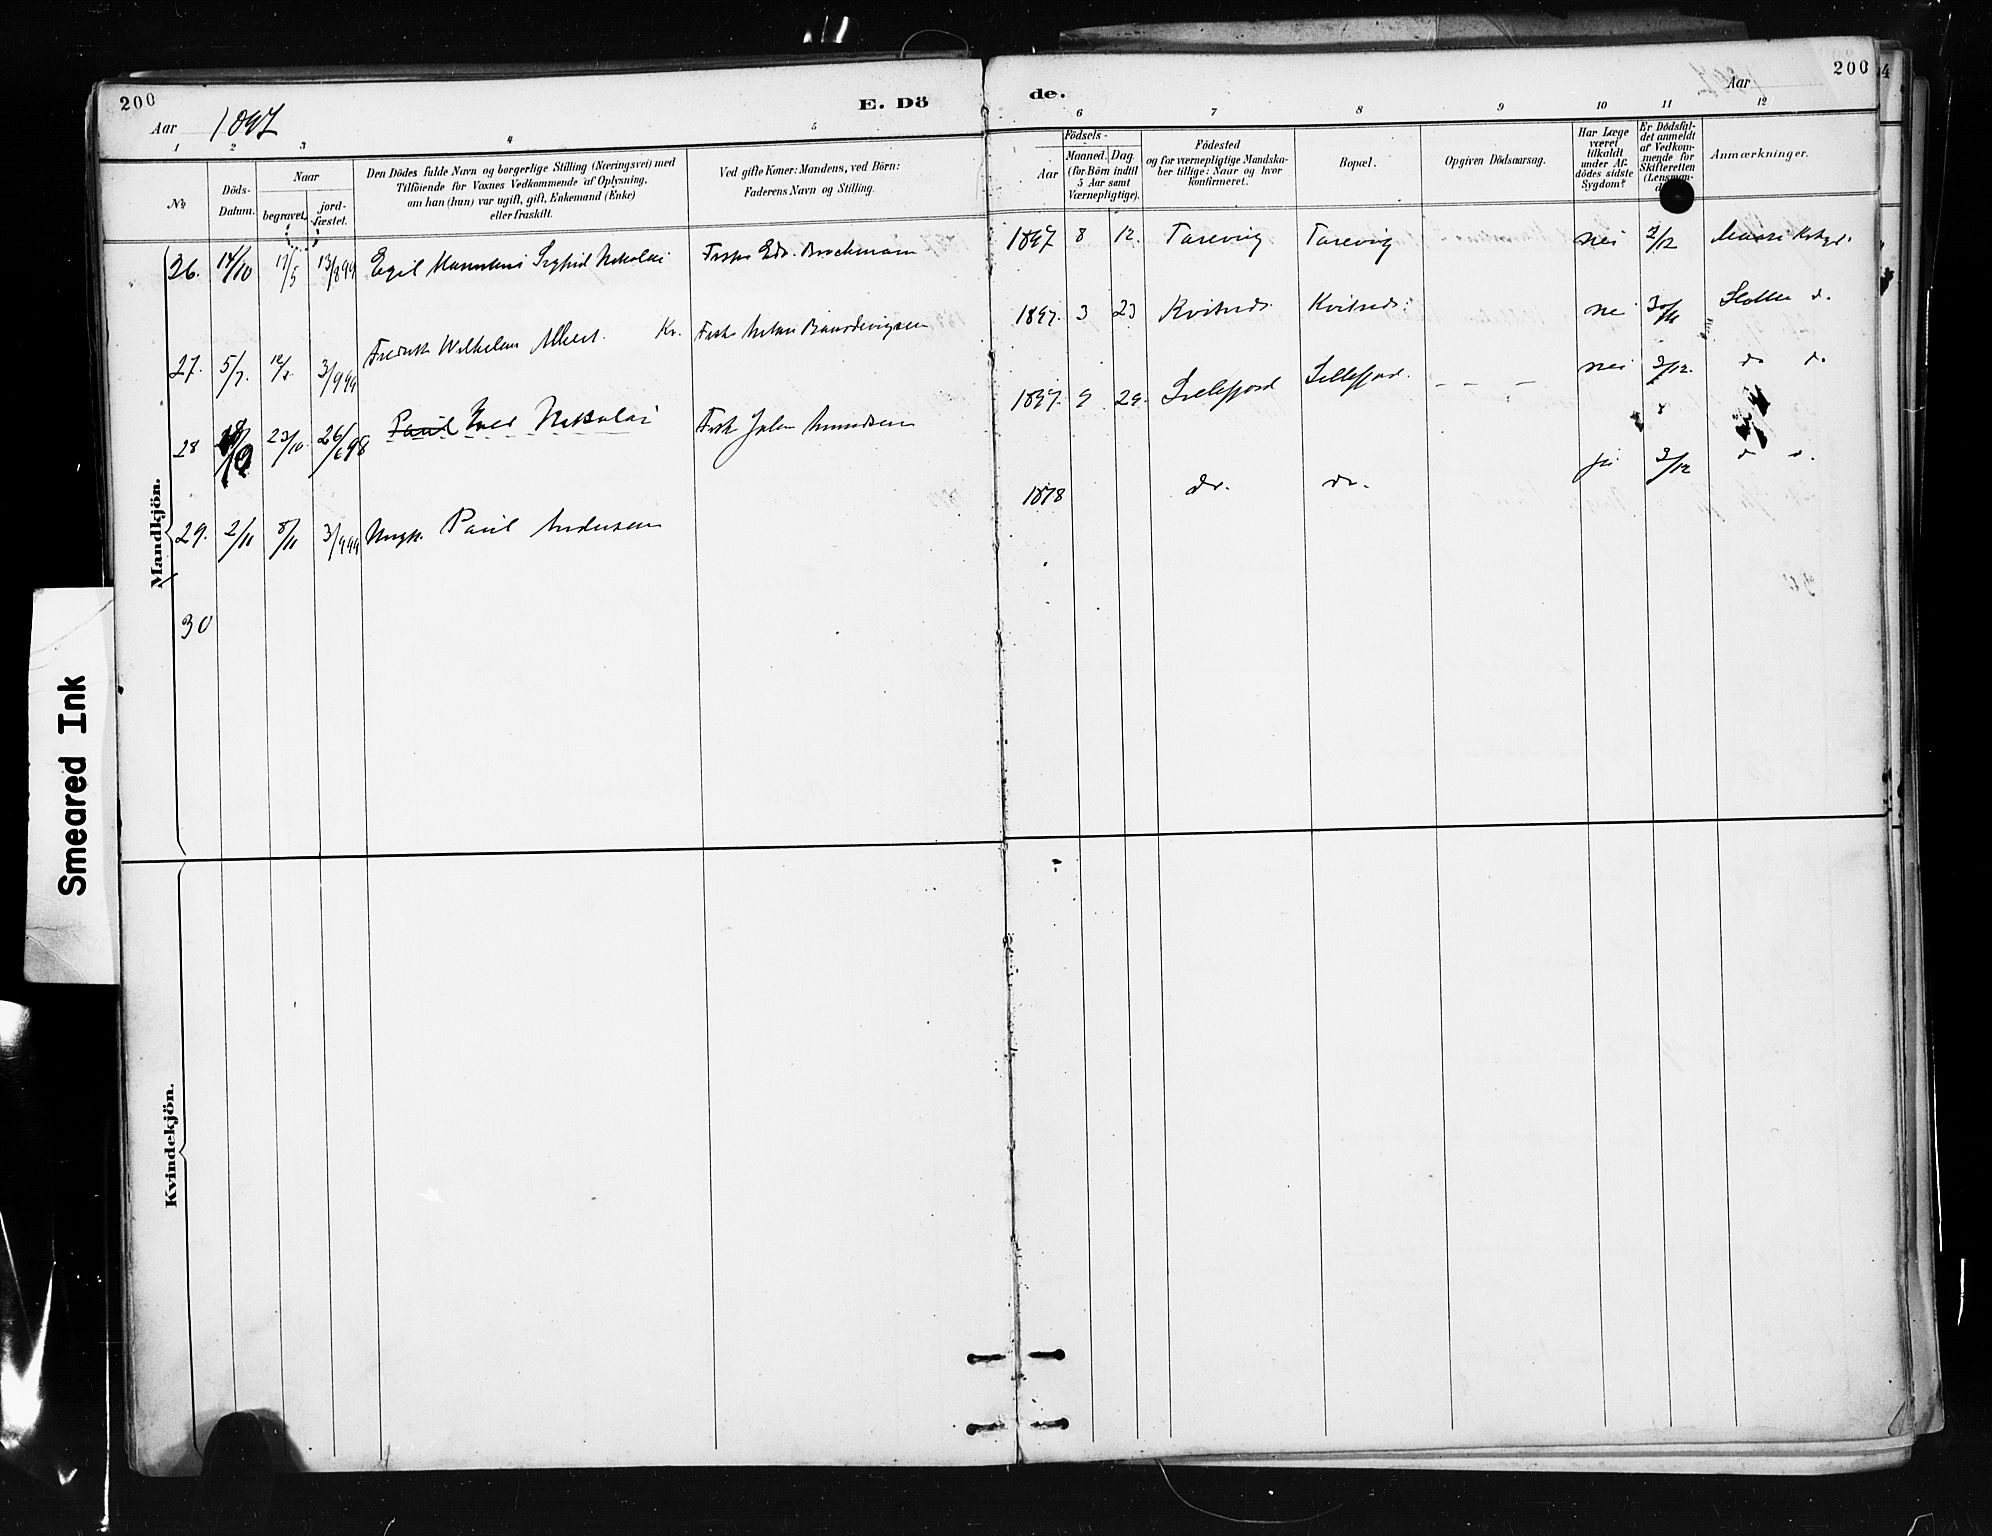 200
E. Dö
de.
200
4
Aar 1897
Aar
1 2 3 4 5 6 7 8 9 10 11 12
No
Döds-
Datum.
Naar
begravet.
jord-
fæstet.
Den Dödes fulde Navn og borgerlige Stilling (Næringsvei) med
Tilföiende for Voxnes Vedkommende af Oplysning,
om han (hun) var ugift, gift, Enkemand (Enke)
eller fraskilt.
Ved gifte Koner: Mandens, ved Börn:
Faderens Navn og Stilling.
Födsels-
Aar
Maaned.
Dag
(for Börn indtil
5 Aar samt
Værnepligtige).
Födested
og for værnepligtige Mandska-
ber tillige: Naar og hvor
konfirmeret.
Bopæl.
Opgiven Dödsaarsag.
Har Læge
været
tilkaldt
under Af-
dödes sidste
Sygdom?
Er Dödsfal-
det anmeldt
af Vedkom-
mende for
Skifteretten
(Lensman-
Anmærkninger.
Mandkjön.
26. 14/10 17/5 13/8 99 Egil Sigfrid Nikolai Edv. Brockmann 1897 8 12. Tarevig Tarevig nei 2/12
27. 5/7. 3/9 99 Fredrik Wilhelm Albert. Kv. Fisk 1897. 3 23 Kvitnes. Kvitnes. nei
28 23/10 26/6 98 Paul Nikolai Fisk John Amundsen 1897. 9 29. Lillefjord Lillefjord. — — — nei 3/12. do do
29. 2/11 8/11 3/9 99 Ungk. Paul Andersen 1878 do. do. ja 3/12 do do.
30
Kvindekjön.
Smeared Ink